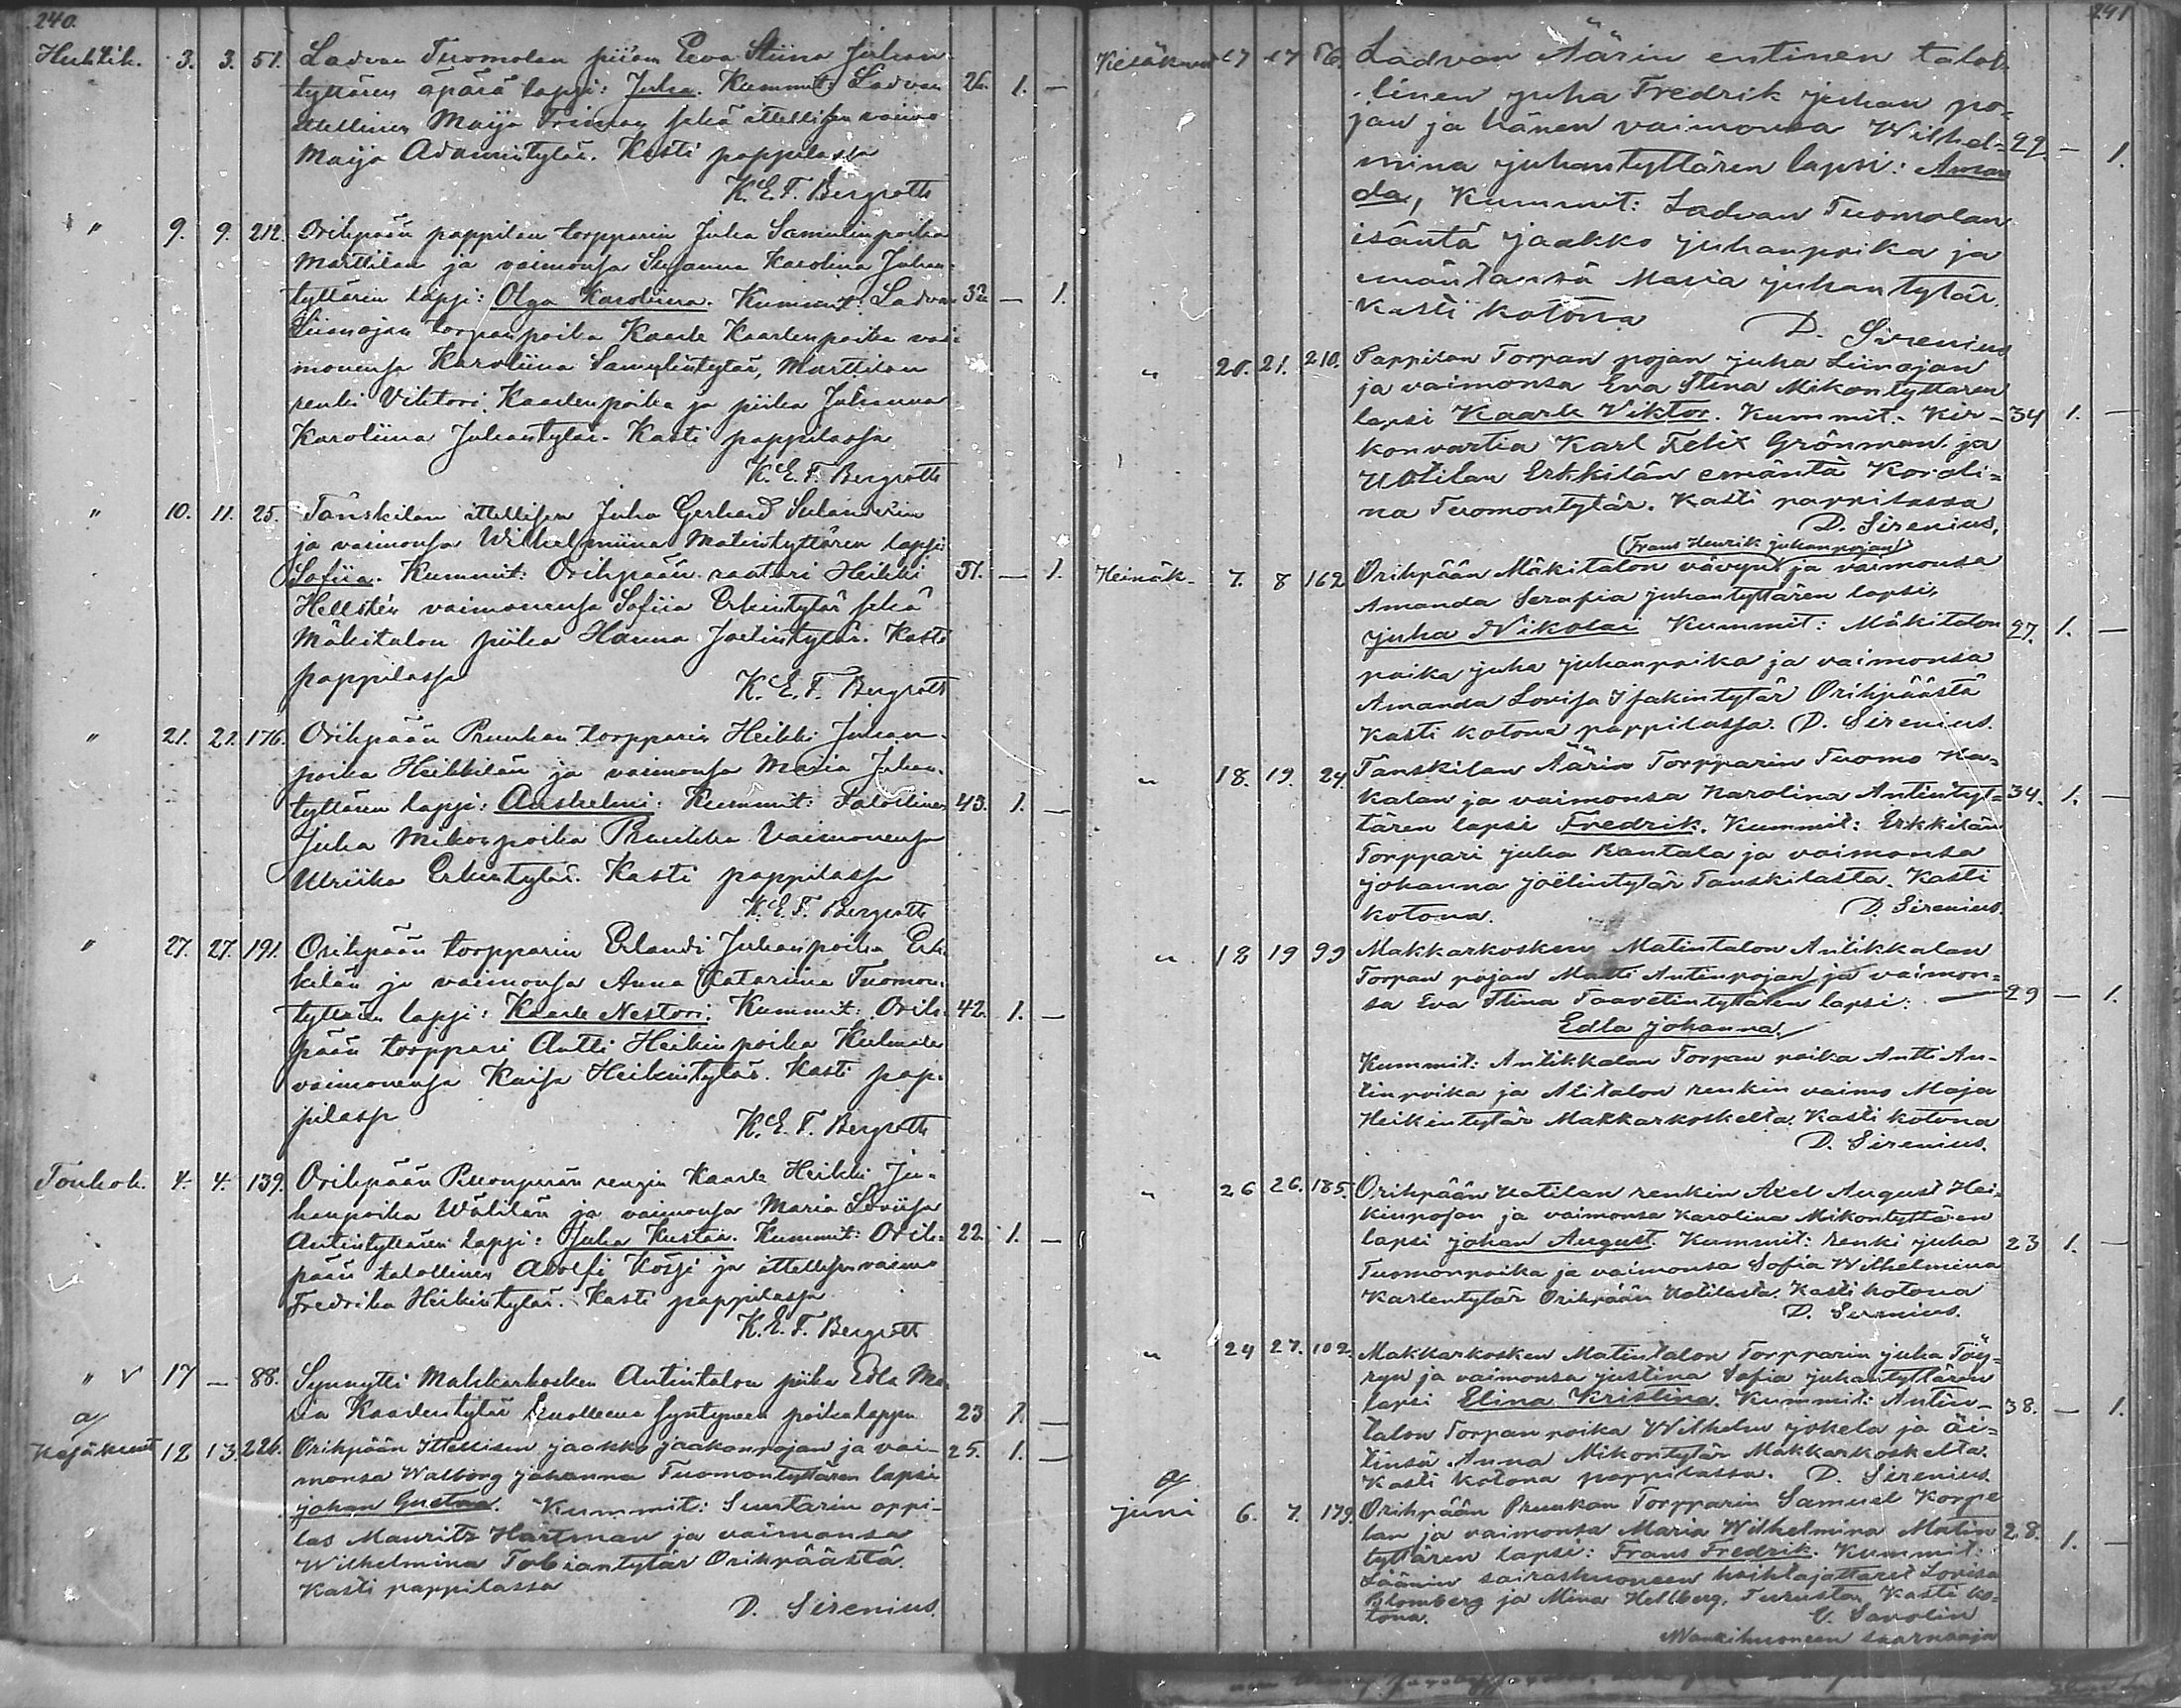 240.
Huhtik. 3. 3. 51. Ladvan Tuomolan piian Eeva Stiina Juhan-
tyttären äpärä lapsi: Juha. Kummit: Ladvan 26. 1. —
ittellinen Maija sekä ittellisen vaimo
Maija Adamintytär. Kasti pappilassa
K. E. F. Bergroth
" 9. 9. 212. Orihpään pappilan torpparin Juha Samulinpoika
Marttilan ja vaimonsa Susanna Karolina Juhan-
tyttären lapsi: Olga Karoliina. Kummit: Ladvan 32. — 1.
Liinojan torpanpoika Kaarle Kaarlenpoika vai-
monensa Karoliina Samulintytär, Marttilan
renki Vihtori Kaarlenpoika ja piika Johanna
Karoliina Juhantytär. Kasti pappilassa
K. E. F. Bergroth
" 10. 11. 25. Tanskilan ittellisen Juha Gerhard Sulanderin
ja vaimonsa Wilhelmiina Matintyttären lapsi
Sofiia. Kummit: Orihpään raatari Heikki 31. — 1.
Hellstén vaimonensa Sofiia Erkintytär sekä
Mäkitalon piika Hanna Joelintytär. Kasti
pappilassa
K. E. F. Bergroth
" 21. 21. 176. Orihpään Pruukan torpparin Heikki Juhan-
poika Heikkilän ja vaimonsa Maria Juhan-
tyttären lapsi: Anshelmi. Kummit: Talollinen 43. 1. —
Juha Mikonpoika Pruukka vaimonensa
Ulriika Erkintytär. Kasti pappilassa
K. E. F. Bergroth
" 27. 27. 191. Orihpään torpparin Erlandi Juhanpoika Erk-
kilän ja vaimonsa Anna Katariina Tuomon-
tyttären lapsi: Kaarle Nestori. Kummit: Orih- 42. 1. —
pään torppari Antti Heikinpoika Kulmala
vaimonensa Kaisa Heikintytär. Kasti pap-
pilassa
K. E. F. Bergroth
Toukok. 4. 4. 139. Orihpään rengin Kaarle Heikki Ju-
hanpoika Wälilän ja vaimonsa Maria Loviisa
Antintyttären lapsi: Juha Kustaa. Kummit: Orih- 22. 1. —
pään talollinen Adolfi Kossi ja ittellisen vaimo
Fredrika Heikintytär. Kasti pappilassa
K. E. F. Bergroth
" v 17 — 88. Synnytti Makkarkosken Antintalon piika Edla Ma-
ria Kaarlentytär kuolleena syntyneen poikalapsen 23 1. —
Kesäkuut 12 13. 226. Orihpään Ittellisen Jaakko Jaakonpojan ja vai- 25. 1. —
monsa Walborg Johanna Tuomontyttären lapsi
Johan Gustaa. Kummit: Suutarin oppi-
las Mauritz Hartman ja vaimonsa
Wilhelmina Tobiantytär Orihpäästä.
Kasti pappilassa
D. Sirenius.
241
Kesäkuut 17 17 86. Ladvan Äärin entinen talol-
linen Juha Fredrik Juhan po-
jan ja hänen vaimonsa Wilhel- 22. — 1.
mina Juhantyttären lapsi: Aman
da, Kummit: Ladvan Tuomolan
isäntä Jaakko Juhanpoika ja
emäntänsä Maria Juhantytär.
Kasti kotona
D. Sirenius
" 20. 21. 210. Pappilan Torpan pojan Juha Liinojan
ja vaimonsa Eva Stina Mikontyttären
lapsi Kaarle Viktor. Kummit: Kir- 34 1. —
konvartia Karl Felix Grönman ja
Uotilan Erkkilän emäntä Karoli-
na Tuomontytär. Kasti pappilassa
D. Sirenius.
(Frans Henrik Juhanpojan)
Heinäk- 7. 8 162 Orihpään Mäkitalon vävyn ja vaimonsa
Amanda Serafia Juhantyttären lapsi,
Juha Nikolai Kummit: Mäkitalon 27. 1. —
poika Juha Juhanpoika ja vaimonsa
Amanda Lovisa Isakintytär Orihpäästä
Kasti kotona pappilassa. D. Sirenius.
" 18. 19. 24 Tanskilan Äärin Torpparin Tuomo Ka-
kalan ja vaimonsa Karolina Antintyt- 34. 1. —
tären lapsi Fredrik. Kummit: Erkkilän
Torppari Juha Rantala ja vaimonsa
Johanna Joëlintytär Tanskilasta. Kasti
kotona. D. Sirenius.
" 18 19 99 Makkarkosken Matintalon Antikkalan
Torpan pojan Matti Antinpojan ja vaimon-
sa Eva Stina Taavetintyttären lapsi: 29 — 1.
Edla Johanna
Kummit: Antikkalan Torpan poika Antti An-
tinpoika ja Alitalon renkin vaimo Maja
Heikintytär Makkarkoskelta. Kasti kotona
D. Sirenius.
" 26 26. 185. Orihpään Uotilan renkin Axel August Hei-
kinpojan ja vaimonsa Karolina Mikontyttären
lapsi Johan August. Kummit: renki Juha 23 1. —
Tuomonpoika ja vaimonsa Sofia Wilhelmina
Karlentytär Orihpään Uotilasta. Kasti kotona
D. Sirenius.
" 24 27. 102. Makkarkosken Matintalon Torpparin Juha Töy-
ryn ja vaimonsa Justina Sofia Juhantyttären
lapsi Elina Kristina. Kummit: Antin- 38. — 1.
talon Torpan poika Wilhelm Jokela ja äi-
tinsä Anna Mikontytär Makkarkoskelta.
Kasti kotona pappilassa. D. Sirenius.
Juni 6. 7. 179. Orihpään Pruukan Torpparin Samuel Korpe
lan ja vaimonsa Maria Wilhelmina Matin 28. 1. —
tyttären lapsi: Frans Fredrik. Kummit:
Läänin sairashuoneen hoihtajattaret Lovisa
Blomberg ja Mina Hellberg. Turustan Kasti ko-
tona. V. Savolin
Wankihuoneen saarnaaja